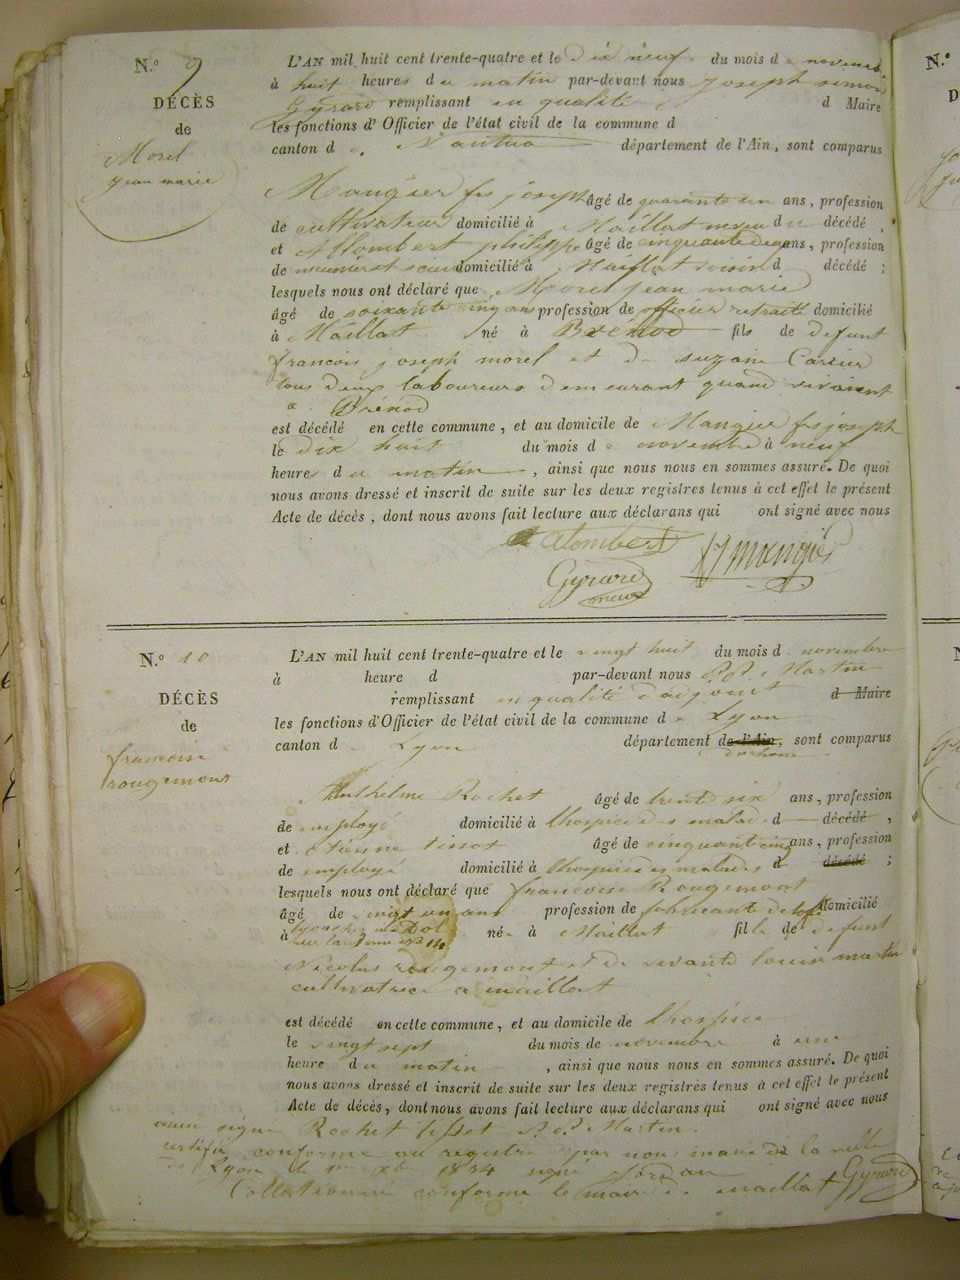 N.° 9
DÉCÈS
de
Morel
jean marie
L'AN mil huit cent trente-quatre et le dix neuf du mois de novembre
à huit heures du matin par-devant nous joseph simon
Gyrard remplissant en qualité d Maire
les fonctions d'Officier de l'état civil de la commune d
canton de Nantua département de l'Ain, sont comparus
Mangier fs joseph âgé de quarante un ans, profession
de cultivateur domicilié à Maillat neveu du décédé,
et Allombert philippe âgé de cinquante deux ans, profession
de domicilié à Maillat voisin d décédé;
lesquels nous ont déclaré que Morel jean marie
âgé de soixante cinq ans profession de officier retraité domicilié
à Maillat né à Brénod fils de défunt
françois joseph morel et de suzane Carrier
tous deux laboureurs demeurant quand vivaient
a Brénod
est décédé en cette commune, et au domicile de Mangier fs joseph
le dix huit du mois de novembre à neuf
heures du matin, ainsi que nous nous en sommes assuré. De quoi
nous avons dressé et inscrit de suite sur les deux registres tenus à cet effet le présent
Acte de décès, dont nous avons fait lecture aux déclarans qui ont signé avec nous
alombert fs mangier
Gyrard
maire
N.° 10
DÉCÈS
de
francoise
rougemont
L'AN mil huit cent trente-quatre et le vingt huit du mois de novembre
à heure d par-devant nous P. P. Martin
remplissant en qualité d'adjoint d Maire
les fonctions d'Officier de l'état civil de la commune de Lyon
canton de Lyon département de l'Ain, sont comparus
du rhone
Anthelme Rochet âgé de trente six ans, profession
de employé domicilié à lhospice des malades d décédé,
et etienne tissot âgé de cinquante cinq ans, profession
de employé domicilié à lhospice des malades d décédé;
lesquels nous ont déclaré que francoise Rougemont
âgé de vingt un ans profession de fabricante de domicilié
à né à Maillat fille de defunt
Nicolas rougemont et de vivante louise martin
cultivatrice a maillat
est décédé en cette commune, et au domicile de lhospice
le vingt sept du mois de novembre à une
heure du matin, ainsi que nous nous en sommes assuré. De quoi
nous avons dressé et inscrit de suite sur les deux registres tenus à cet effet le présent
Acte de décès, dont nous avons fait lecture aux déclarans qui ont signé avec nous
signé Rochet tissot P. P. Martin.
certifié conforme au registre par nous maire de la ville
de Lyon le 1er xbre 1834 signé
Collationné conforme le maire de maillat Gyrard